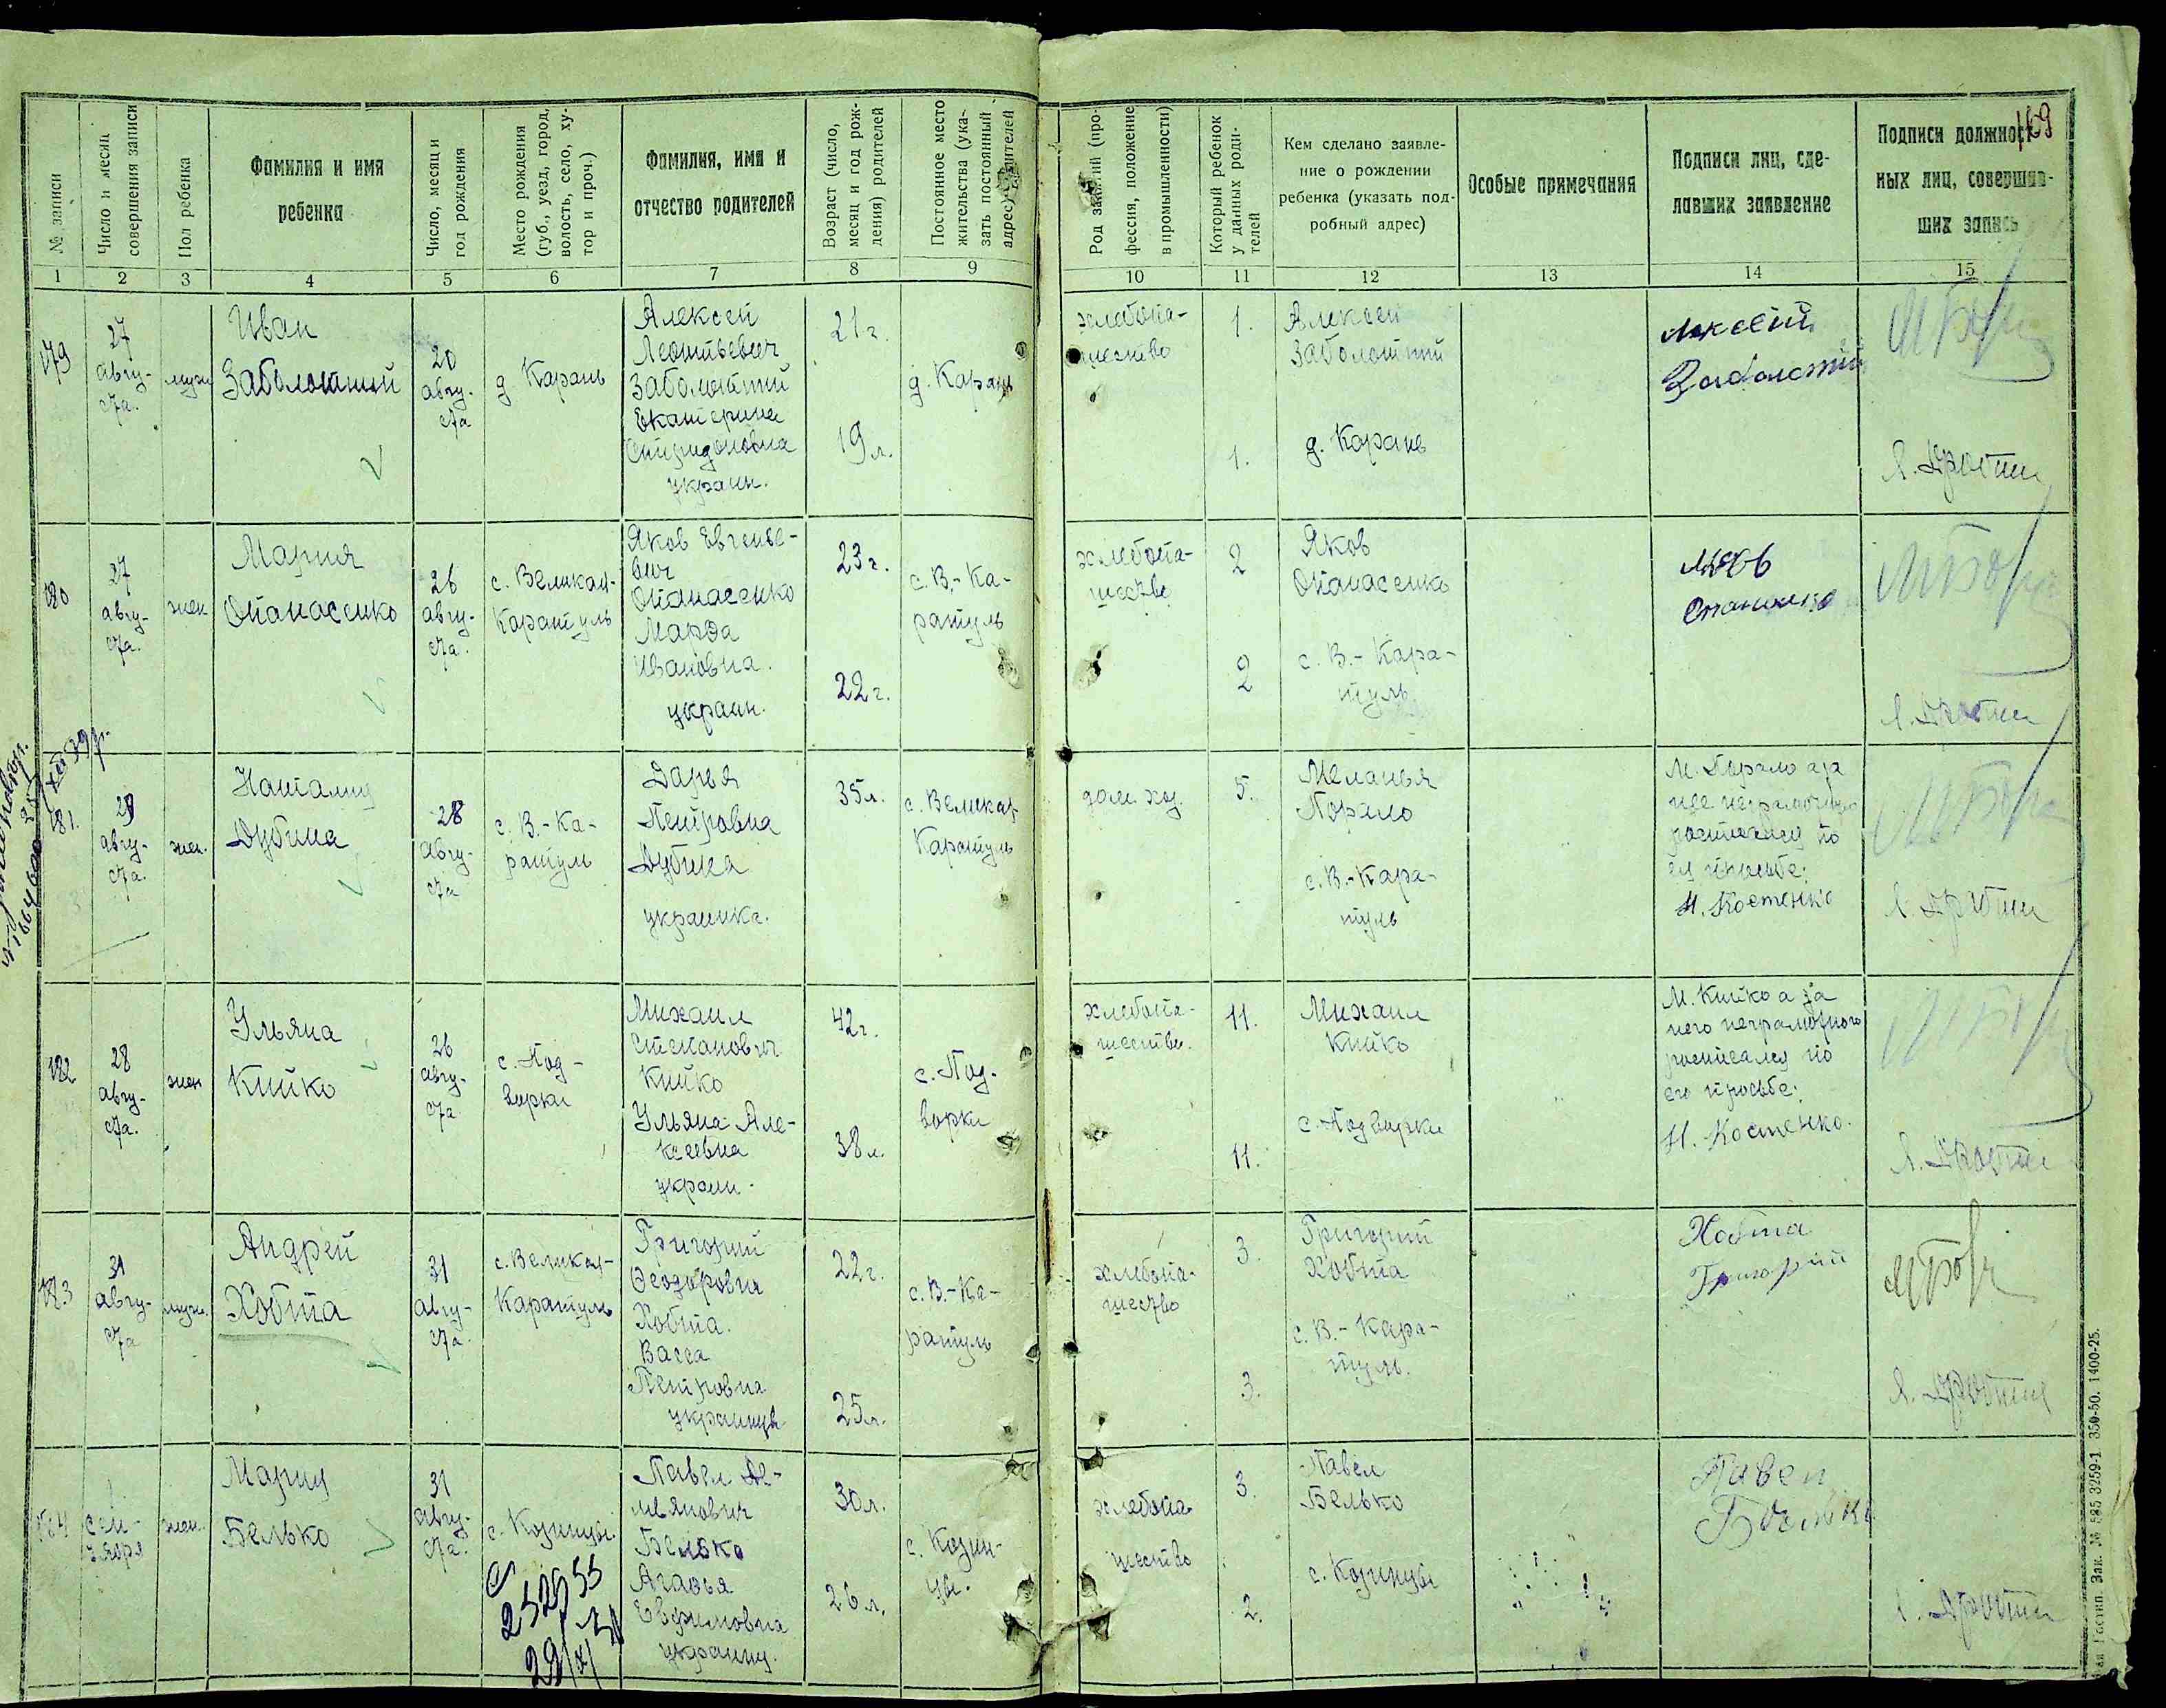 159
№ записи
Число и месяц
совершения записи
Пол ребенка
Фамилия и имя
ребенка
Число, месяц и
год рождения
Место рождения
(губ., уезд, город,
волость, село, ху-
тор и проч.)
Фамилия, имя и
отчество родителей
Возраст (число,
месяц и год рож-
дения) родителей
Постоянное место
жительства (ука-
зать постоянный
адрес) родителей
Род занятий (про-
фессия, положение
в промышленности)
Который ребенок
у данных роди-
телей
Кем сделано заявле-
ние о рождении
ребенка (указать под-
робный адрес)
Особые примечания
Подписи лиц, сде-
лавших заявление
Подписи должност-
ных лиц, совершив-
ших запись
1 2 3 4 5 6 7 8 9 10 11 12 13 14 15
179
27
авгу-
ста.
муж
Иван
Заболотний
20
авгу-
ста
д Карань
Алексей
Леонтьевич
Заболотний
Екатерина
Спиридоновна
украин.
21 г.
19 л.
д. Карань
хлебопа-
шество
1.
1.
Алексей
Заболотний
д. Карань
Алексей
Заболотний
180
27
авгу-
ста.
жен
Мария
Опанасенко
26
авгу-
ста.
с. Великая-
Каратуль
Яков Евгенье-
вич
Опанасенко
Марфа
Ивановна.
украин.
23 г.
22 г.
с. В.-Ка-
ратуль
хлебопа-
шество
2
2
Яков
Опанасенко
с. В.-Кара-
туль
181.
29
авгу-
ста.
жен.
Наталия
Дубина
28
авгу-
ста
с. В.-Ка-
ратуль
Дарья
Петровна
Дубина
украинка.
35 л.
с. Великая
Каратуль
дом. хоз.
5.
Меланья
Порало
с. В.-Кара-
туль
М. Порало а за
нее неграмотную
расписался по
ея просьбе:
Н. Костенко
182
28
авгу-
ста.
жен
Ульяна
Кийко
26
авгу-
ста
с. Под-
ворки
Михаил
Степанович
Кийко
Ульяна Але-
ксеевна
украин.
42 г.
38 л.
с. Под-
ворки
хлебопа-
шество.
11.
11.
Михаил
Кийко
с. Подворки
М. Кийко а за
него неграмотного
расписался по
его просьбе:
Н. Костенко.
183
31
авгу-
ста
муж.
Андрей
Хобта
31
авгу-
ста
с. Великая-
Каратуль
Григорий
Феодорович
Хобта.
Васса
Петровна
украинцы
22 г.
25 л.
с. В.-Ка-
ратуль
хлебопа-
шество
3.
3.
Григорий
Хобта
с. В.-Кара-
туль.
Хобта
Григорий
184
1
сен-
тября
жен.
Мария
Белько
31
авгу-
ста.
с. Козинцы
Павел Де-
мьянович
Белько
Агафья
Евфимовна
украинц.
30 л.
26 л.
с. Козин-
цы.
хлебопа-
шество
3.
2.
Павел
Белько
с. Козинцы
Павел